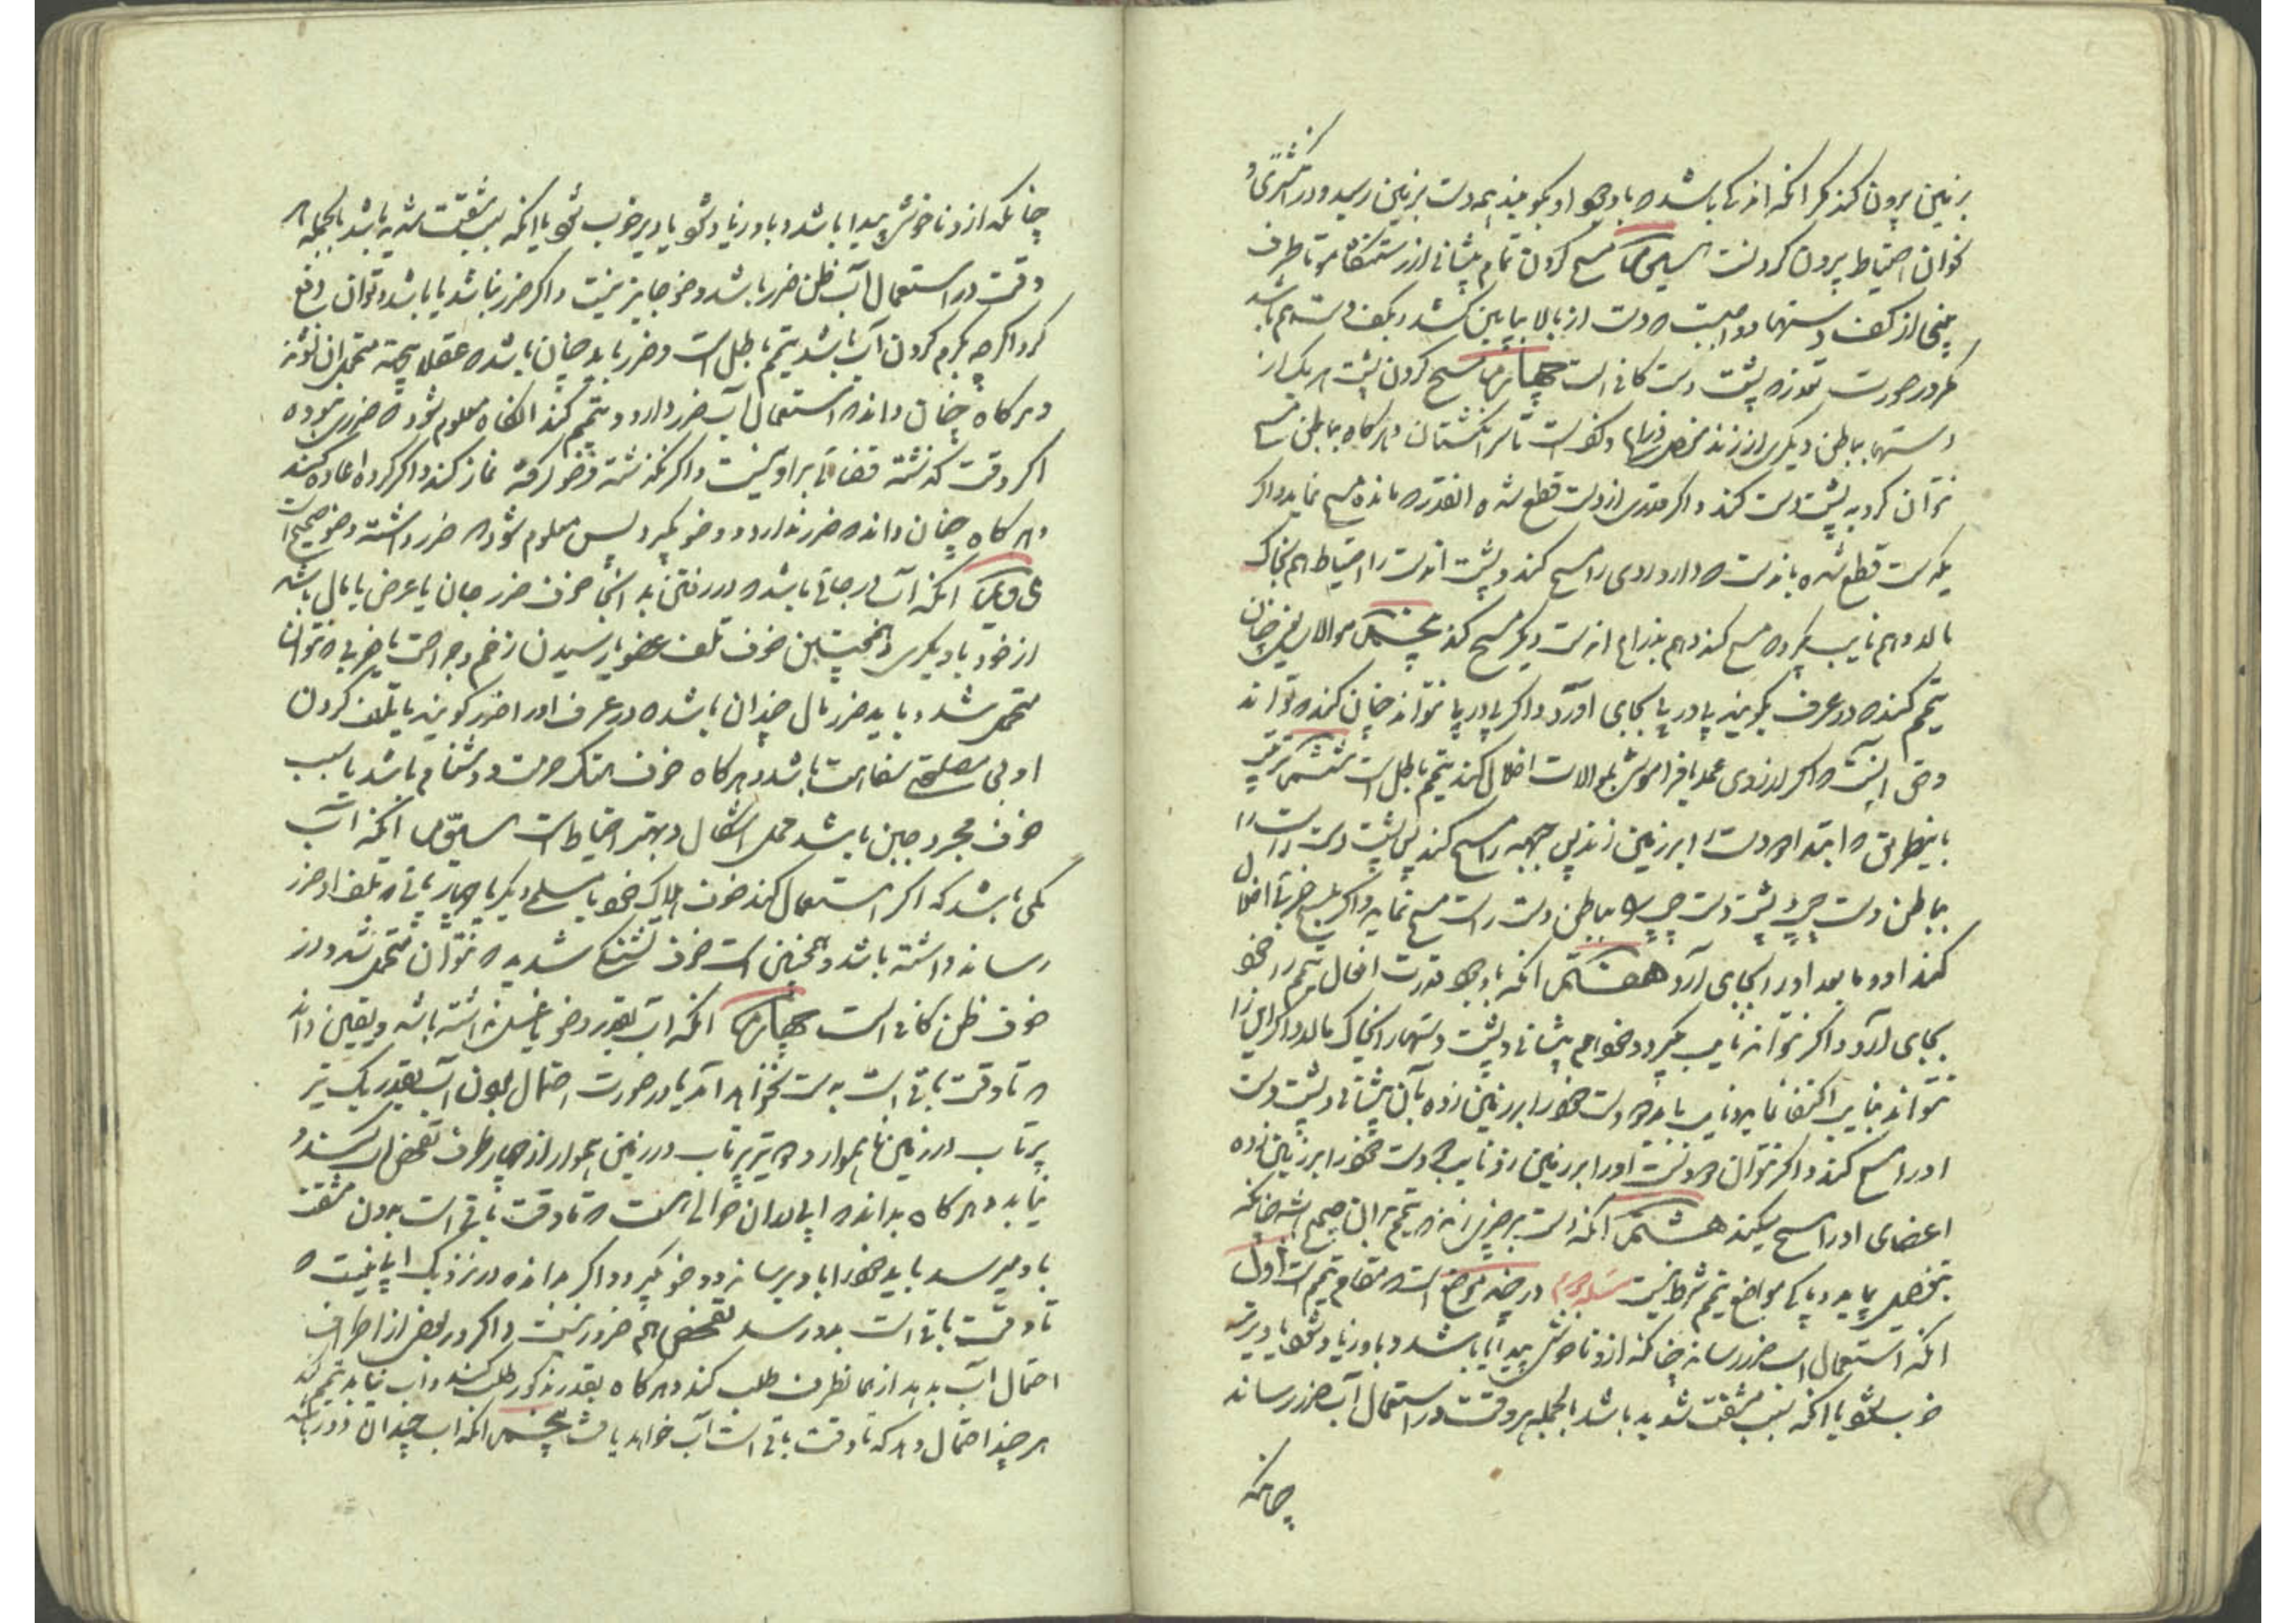 بر زمین بیرون کند مگر آنکه اندکی باشد که با وجود او بگویند همه دست بر زمین رسید و در انگشتری
نتوان احتیاط بیرون کردنست سیم مسح کردن تمام پیشانی از رستنگاه مو تا طرف
بینی از کف دستها و واجبست که دست از بالا بپایین کشد و بکف دست هم باشد
مگر در صورت تعذر که پشت دست کافی است چهارم مسح کردن پشت هر یک از
دستها بباطن دیگری از زند تا سر انگشتان و هرگاه بباطن مسح
نتوان کرد به پشت دست کند و اگر قدری از دست قطع شده انقدر که مانده مسح نماید و اگر
یکدست قطع شده باندست که دارد روی را مسح کند و پشت اندست را احتیاط هم بخاک
مالد و هم نایب بگیرد که مسح کند و هم بذراع اندست دیگر مسح کند پنجم موالات یعنی چنان
تیمم کند که در عرف بگویند پا در پا بجای آورد و اگر پا در پا نتواند چنان کند که تواند
وحق اینست که اگر از روی عمد یا فراموشی بموالات اخلال کند تیمم باطل است ششم ترتیب
باینطریق که ابتدا دو دست را بر زمین زند پس جبهه را مسح کند پس پشت دست راست را
بباطن دست چپ و پشت دست چپ را بباطن دست راست مسح نماید و اگر بترتیب اخلال
کند او و ما بعد او را بجای آرد هفتم انکه با وجود قدرت افعال تیمم را خود
بجای آرد و اگر نتواند نایب گیرد و خود هم پیشانی و پشت دستها را بخاک مالد و اگر این را
نتواند بنایب اکتفا نماید و نایب باید دو دست خود را بر زمین زده بآن پیشانی و پشت دست
او را مسح کند و اگر نتوان دو دست او را بر زمین زد نایب دو دست خود را بر زمین زده
اعضای او را مسح میکند هشتم انکه دست بر چیزی زند که تیمم بران صحیح باشد چنانکه
بتفصیل بیاید و پاکی مواضع تیمم شرط نیست مسئله دوم در چند موضع است که مقام تیمم است اول
انکه استعمال اب ضرر رساند چنانکه ازو ناخوشی پیدا باشد و یا ورزیاد شود یا دیر تر
خوب شود یا انکه بسبب مشقت شدید باشد بالجمله هر وقت در استعمال آب ضرر رساند
چنانکه
چنانکه ازو ناخوشی پیدا باشد و یا ورزیاد شود یا دیر خوب شود یا انکه بسبب مشقت شدید باشد بالجمله هر
وقت در استعمال آب ظن ضرر باشد وضو جایز نیست و اگر ضرر نباشد یا باشد و توان دفع
کرد اگر چه بگرم کردن آب باشد تیمم باطل است و ضرر باید چنان باشد که عقلا متحمل ان نشوند
و هر گاه چنان داند که استعمال آب ضرر دارد و تیمم کند انگاه معلوم شود که ضرری نبوده
اگر وقت گذشته قضا بر او نیست و اگر نگذشته وضو گرفته نماز کند و اگر کرده اعاده کند
و هر گاه چنان داند که ضرر ندارد و وضو بگیرد و پس معلوم شود که ضرر داشته وضو صحیح است
دویم انکه آب در جائی باشد که در رفتن به انجا خوف ضرر جان یا عرض یا مال باشد
از خود یا دیگری و همچنین خوف تلف عضو یا رسیدن زخم و جراحت یا ضربی که نتوان
متحمل شد و باید ضرر مال چندان باشد که در عرف او را ضرر گویند یا تلف کردن
او بی مصلحتی سفاهت باشد و هر گاه خوف هتک حرمت و دشنام باشد یا بسبب
خوف مجرد جبن باشد محل اشکال و بهتر احتیاط است سیم انکه آب
کمی باشد که اگر استعمال کند خوف هلاک خود یا مسلمی دیگر یا چهارپائی که تلف او ضرر
رساند داشته باشد و همچنین است خوف تشنگی شدید که نتوان متحمل شد و در
خوف ظن کافی است چهارم انکه اب بقدر وضو یا غسل نداشته باشد و یقین داند
که تا وقت باقی است بدست نخواهد آمد یا در صورت احتمال بودن آب بقدر یک تیر
پرتاب در زمین ناهموار و دو تیر پرتاب در زمین هموار از چهار طرف تفحص اب کند و
نیابد و هر گاه بداند که ابی در ان حوالی هست که تا وقت باقی است بدون مشقت
باو میرسد باید خود را باو برساند و وضو بگیرد و اگر بداند که در نزدیک ابی نیست که
تا وقت باقی است بدو رسد تفحص هم ضرور نیست و اگر در بعضی از اطراف
احتمال آب بدهد از همانطرف طلب کند و هر گاه بقدر مذکور طلب کند و اب نیابد تیمم کند
هر چند احتمال دهد که تا وقت باقی است آب خواهد یافت پنجم انکه اب چندان دور باشد